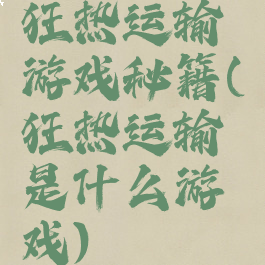 狂热运输
游戏秘籍(
狂热运输
是什么游
戏)